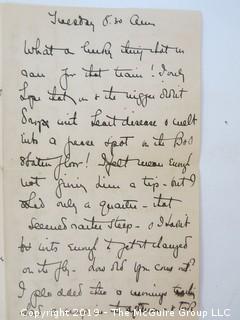 Tuesday 8.30 am
What a lucky thing that in
saw for that train! I only
hope that in & the nigger did't
drop with heart disease & melt
into a grease spot on the Bos
station floor! I felt mean enough
not giving him a tip - but I
had only a quarter - that
seemed rather steep - & I hadn't
wits enough to get it changed
on the fly - How did you come out?
I plodded thro a mornings
Copyright © 2019 - The McGuire Group LLC